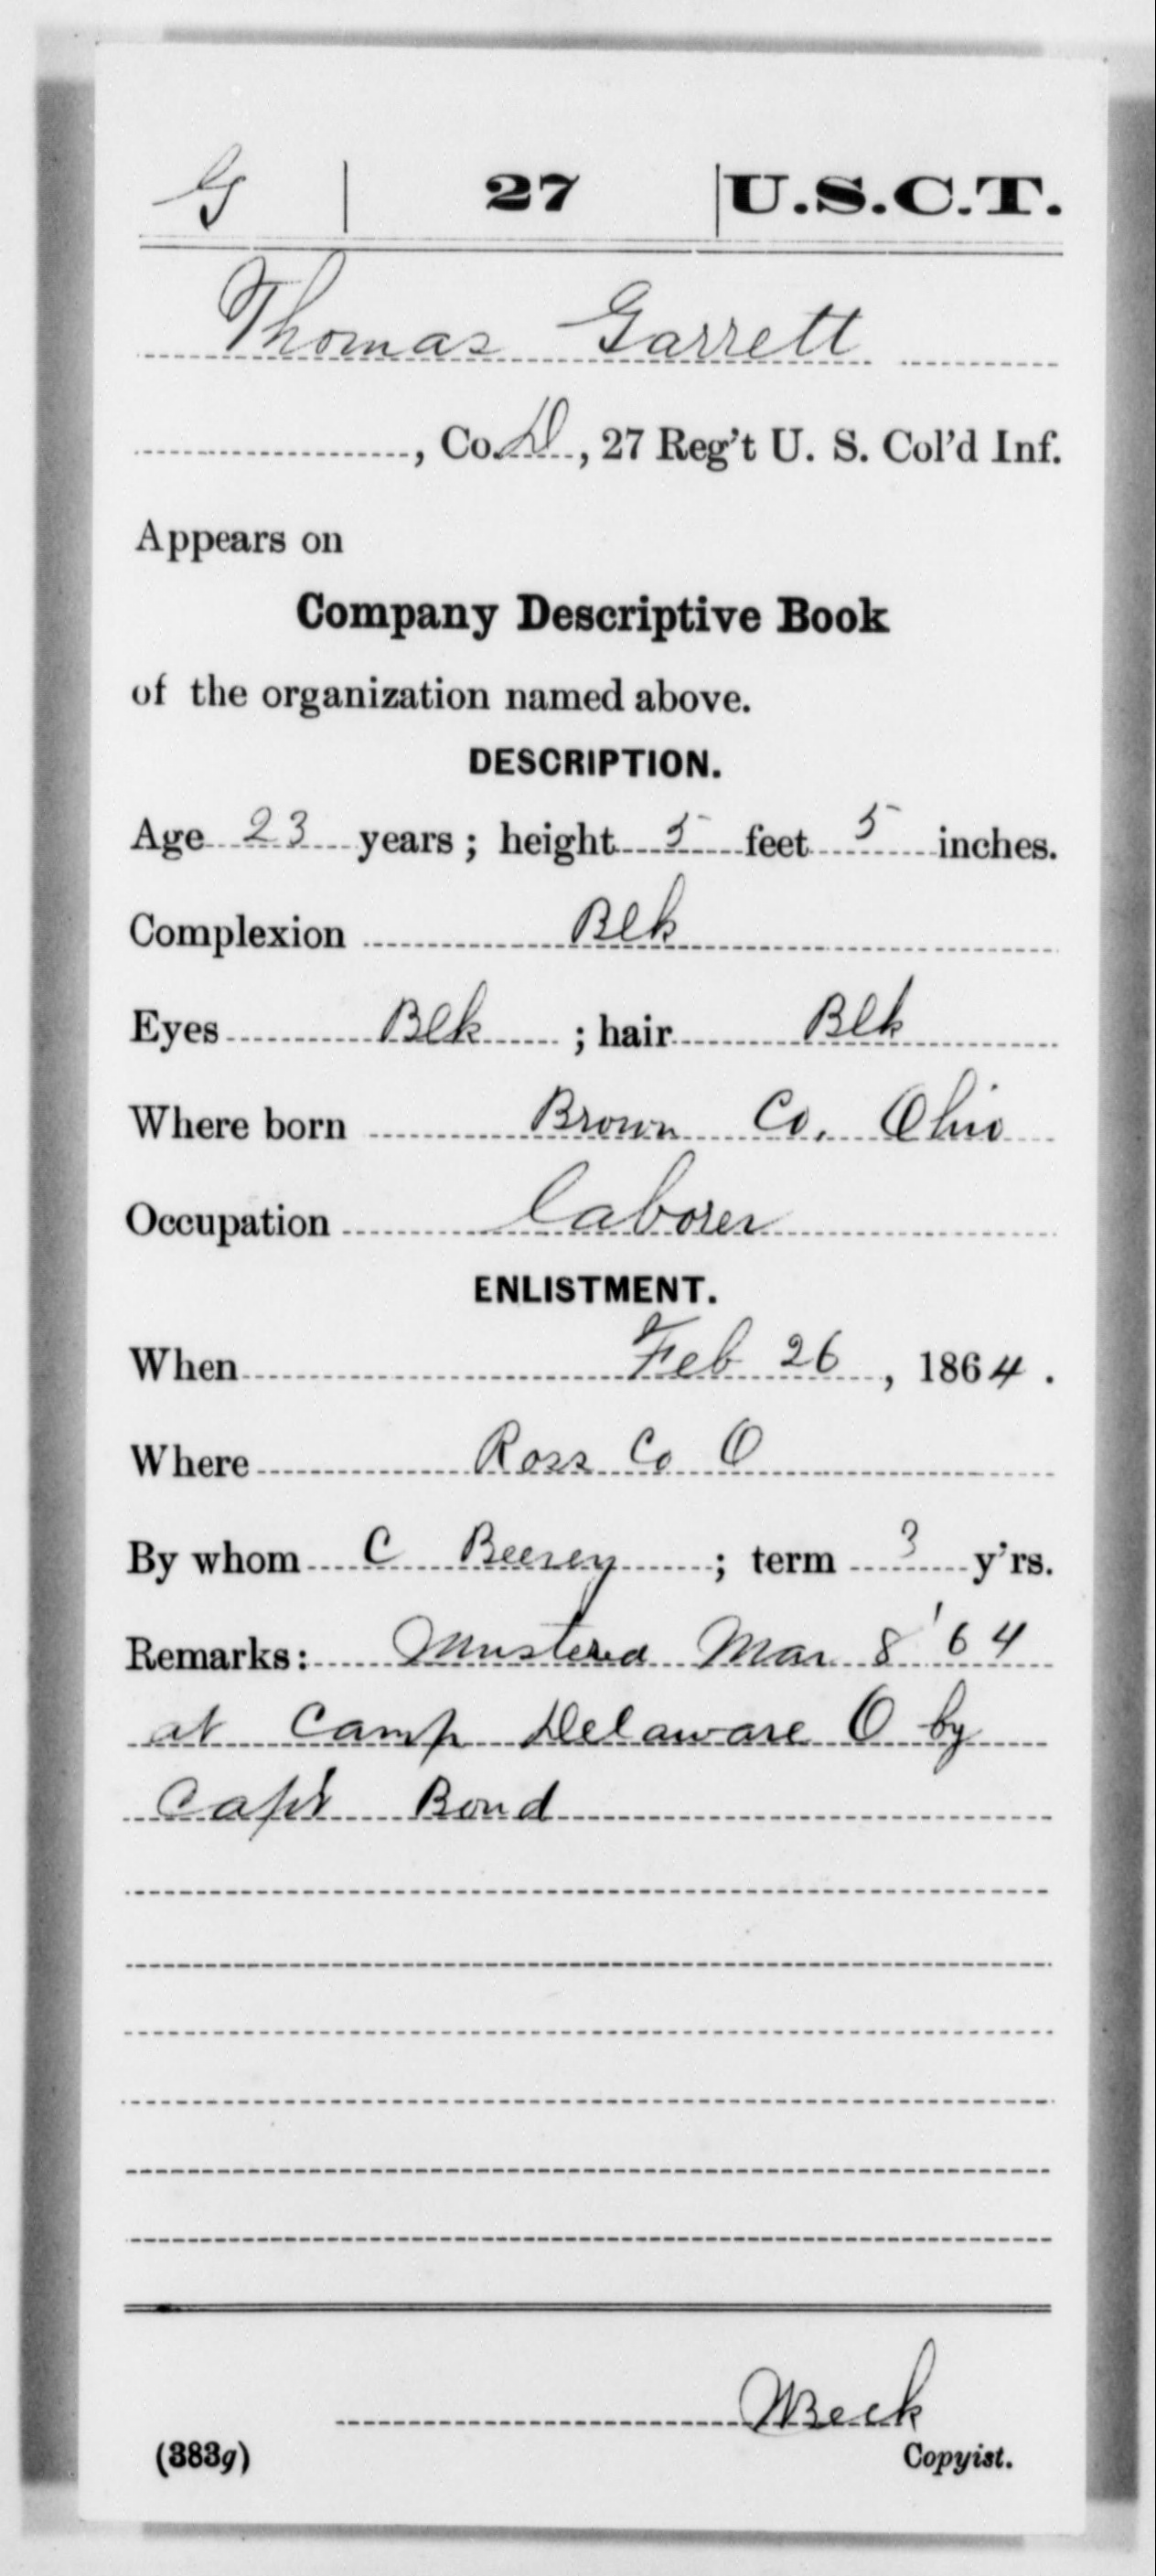 G | 27 | U.S.C.T.
Thomas Garrett
, Co. D, 27 Reg't U. S. Col'd Inf.
Appears on
Company Descriptive Book
of the organization named above.
DESCRIPTION.
Age 23 years; height 5 feet 5 inches.
Complexion Blk
Eyes Blk; hair Blk
Where born Brown Co, Ohio
Occupation laborer
ENLISTMENT.
When Feb 26, 1864.
Where Ross Co O
By whom C Beerey; term 3 y'rs.
Remarks: Mustered Mar 8 '64
at Camp Delaware O by
Capt Bond
Beck
(383g) Copyist.